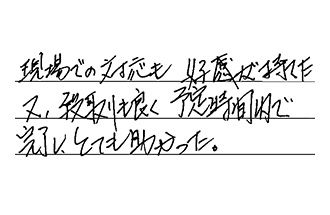 現場での対応も 好感が持てた
又、段取りも良く 予定時間内で
完了し、とても助かった。